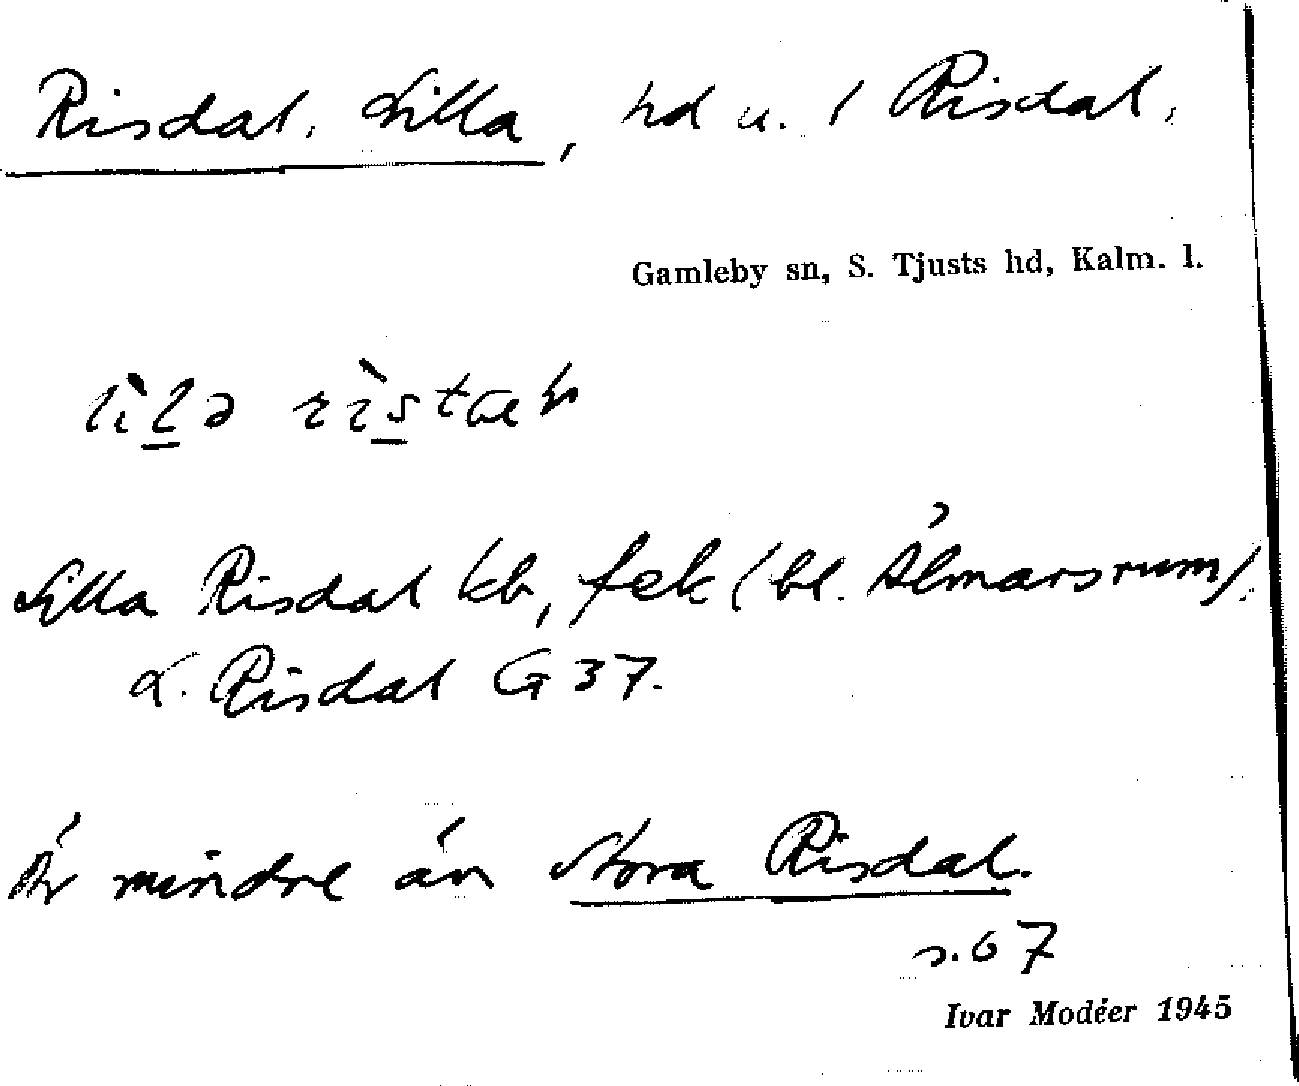 Risdal, Lilla, hd u. / Risdal,
Gamleby sn, S. Tjusts hd, Kalm. l.
Lilla Risdal kb, fek (bl. Ålmarsrum).
L. Risdal G 37.
Är mindre än Stora Risdal.
s. 67
Ivar Modéer 1945